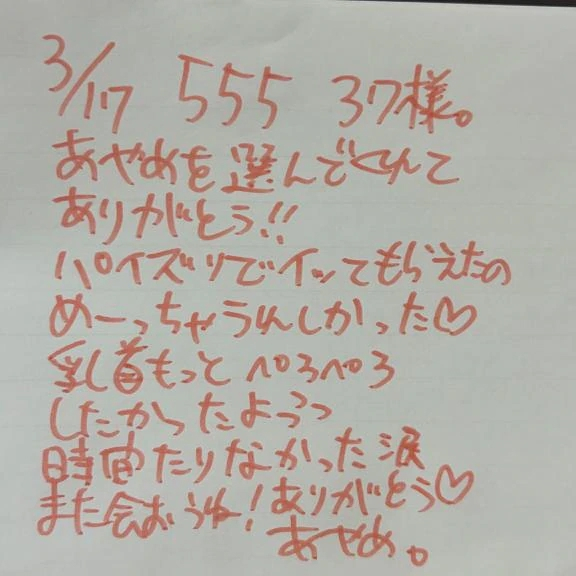 3/17 555 37様。
あやめを選んでくれて
ありがとう!!
パイズリでイッてもらえたの
めーっちゃうれしかった♡
乳首もっとペろペろ
したかったよぅぅ
時間たりなかった涙
また会おうね！ありがとう♡
あやめ。